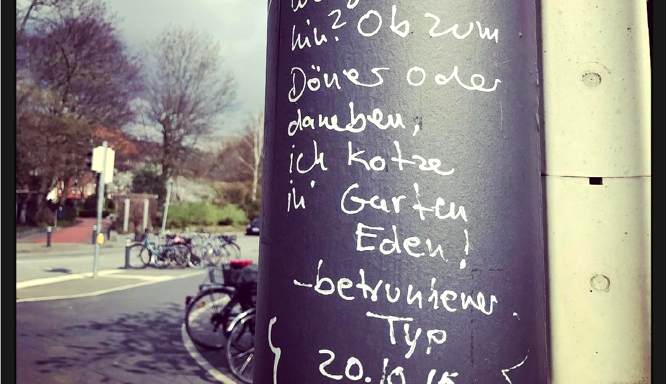 hin? Ob zum
Döner oder
daneben,
ich kotze
in' Garten
Eden!
-betrunkener
Typ
20.10.15